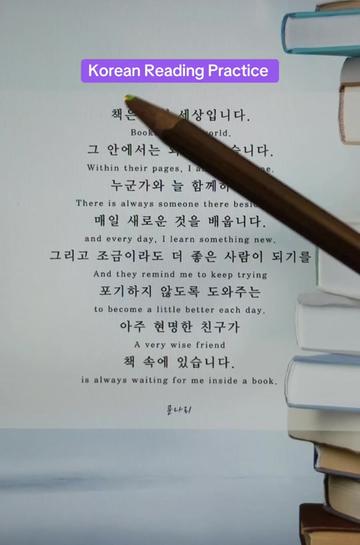 Korean Reading Practice
책은 세상입니다.
Books world.
그 안에서는
Within their pages, I
누군가와 늘 함께
There is always someone there
매일 새로운 것을 배웁니다.
and every day, I learn something new.
그리고 조금이라도 더 좋은 사람이 되기를
And they remind me to keep trying
포기하지 않도록 도와주는
to become a little better each day.
아주 현명한 친구가
A very wise friend
책 속에 있습니다.
is always waiting for me inside a book.